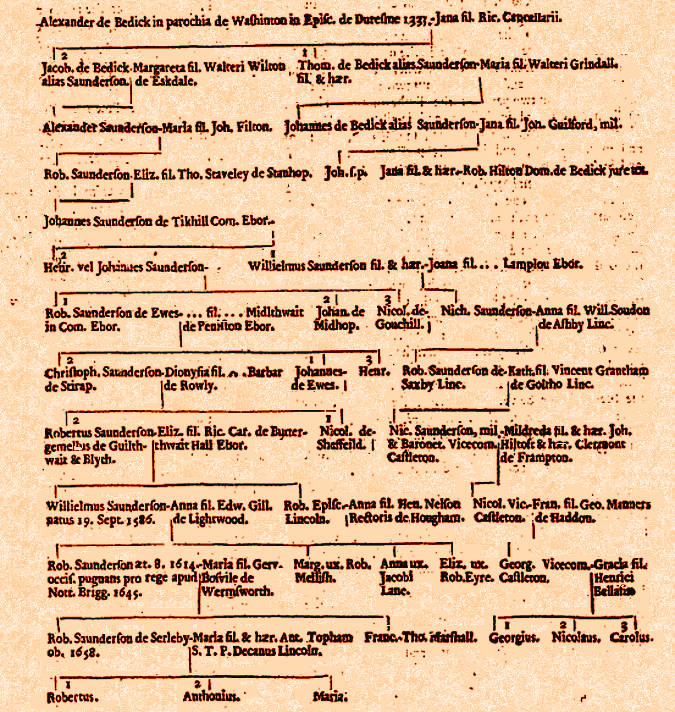 Alexander de Bedick in parochia de Washinton in Episc. de Duresme 1337.-Jana fil. Ric. Cancellarii.
2 1
Jacob. de Bedick-Margareta fil. Walteri Wilton Thom. de Bedick alias Saunderson-Maria fil. Walteri Grindall.
alias Saunderson. de Eskdale. fil. & hær.
Alexander Saunderson-Maria fil. Joh. Filton. Johannes de Bedick alias Saunderson-Jana fil. Joh. Guilford, mil.
Rob. Saunderson-Eliz. fil. Tho. Staveley de Stanhop. Joh. s.p. Jana fil. & hær.-Rob. Hilton Dom. de Bedick jure
Johannes Saunderson de Tikhill Com. Ebor.
2 1
Henr. vel Johannes Saunderson- Willielmus Saunderson fil. & hær.-Joana fil. . . . Lamplou Ebor.
1 2 3
Rob. Saunderson de Ewes-. . . fil. . . . Midlthwait Johan. de Nicol. de- Nich. Saunderson-Anna fil. Will. Soudon
in Com. Ebor. de Peniston Ebor. Midhop. Gouchill. de Ashby Linc.
2 1 3
Christoph. Saunderson-Dionysia fil. . . . Barbar Johannes- Henr. Rob. Saunderson de-Kath. fil. Vincent Grantham
de Scrap. de Rowly. de Ewes. Saxby Linc. de Goltho Linc.
2 1
Robertus Saunderson-Eliz. fil. Ric. Car. de Butter- Nicol. de- Nic. Saunderson, mil.-Mildreda fil. & hær. Joh.
gemellus de Guilth- thwait Hall Ebor. Sheffeild. & Baronet. Vicecom. Hiltoft & hær. Clermont
wait & Blyth. Castleton. de Frampton.
Willielmus Saunderson-Anna fil. Edw. Gill. Rob. Episc.-Anna fil. Hen. Nelson Nicol. Vic.-Fran. fil. Geo. Manners
natus 19. Sept. 1586. de Lightwood. Lincoln. Rectoris de Hougham. Castleton. de Haddon.
Rob. Saunderson æt. 8. 1614.-Maria fil. Gerv. Marg. ux. Rob. Anna ux. Eliz. ux. Georg. Vicecom.-Gracia fil.
occis. pugnans pro rege apud Bosvile de Mellish. Jacobi Rob. Eyre. Castleton. Henrici
Nott. Brigg. 1645. Wermsworth. Lane. Bellasiso
Rob. Saunderson de Serleby-Maria fil. & hær. Ant. Topham Franc.-Tho. Marshall. 1 2 3
ob. 1658. S. T. P. Decanus Lincoln. Georgius. Nicolaus. Carolus.
1 2
Robertus. Anthonius. Maria.